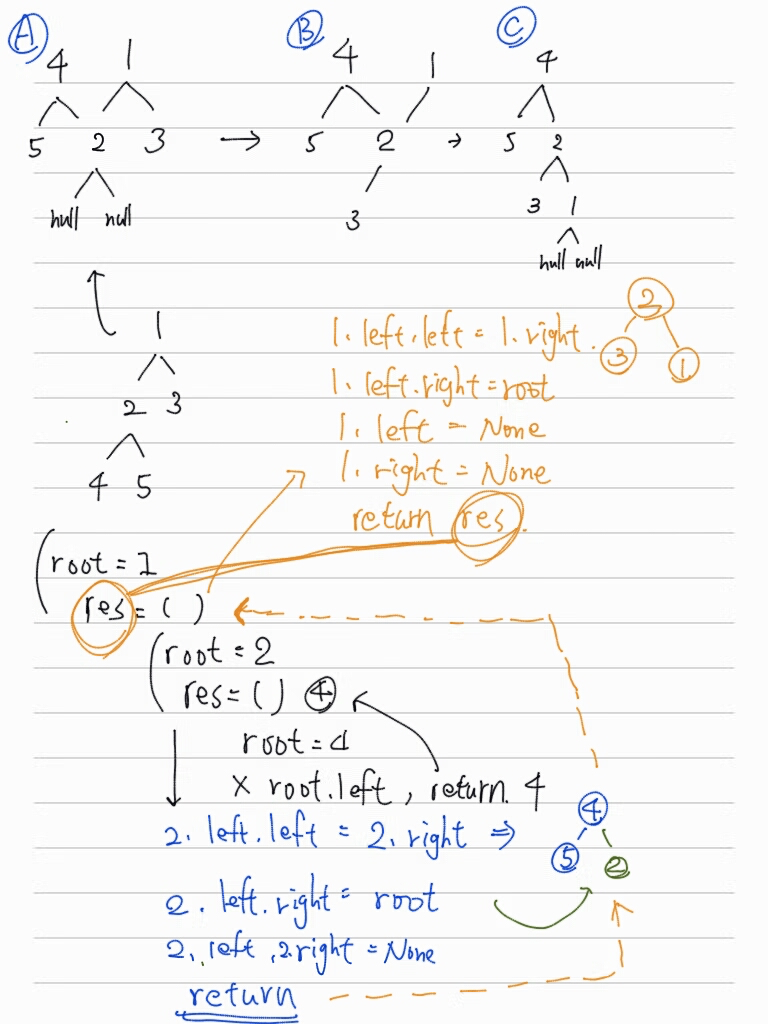 A B C
4 1 4 1 4
5 2 3 → 5 2 → 5 2
null null 3 3 1
null null
1
2 3
4 5
1. left.left = 1. right.
2
3 1
1. left.right = root
1. left = None
1. right = None
return res.
root = 1
res = ( )
root = 2
res = ( ) 4
root = 4
× root.left, return 4
2. left.left = 2. right ⇒
4
5 2
2. left.right = root
2. left, 2.right = None
return